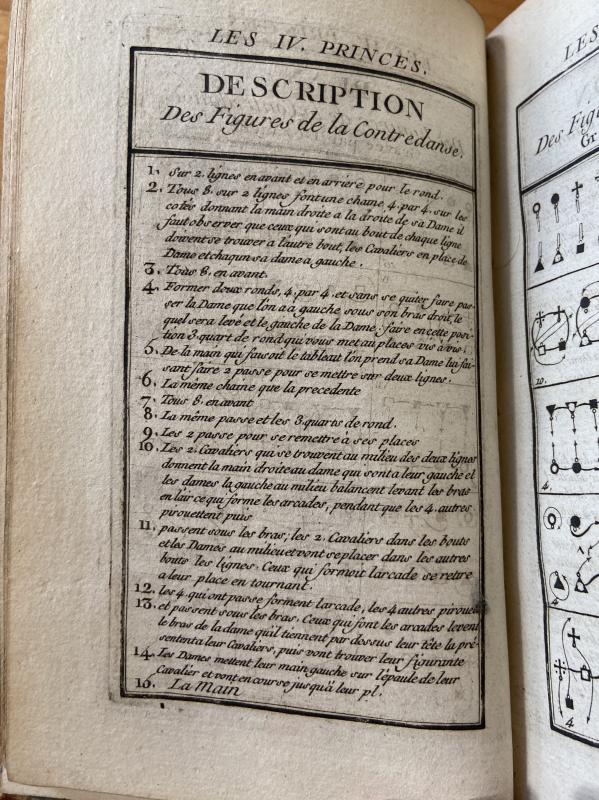 LES IV. PRINCES.
DESCRIPTION
Des Figures de la Contredanse.
1. Sur 2. lignes en avant et en arriere pour le rond.
2. Tous 8. sur 2 lignes font une chaine 4. par 4. sur les
cotés donnant la main droite a la droite de sa Dame il
faut observer que ceux qui sont au bout de chaque ligne
doivent se trouver a l'autre bout, les Cavaliers en place de
Dame et chaqun sa dame a gauche.
3. Tous 8. en avant.
4. Former deux ronds, 4. par 4. et sans se quiter faire pas-
ser la Dame que l'on a a gauche sous son bras droit, le
quel sera levé et le gauche de la Dame; faire en cette posi-
tion 3. quart de rond qui vous met au places vis à vis.
5. De la main qui faisoit le tableau l'on prend sa Dame lui fai-
sant faire 2 passe pour se mettre sur deux lignes.
6. La même chaine que la precedente
7. Tous 8. en avant
8. La même passe et les 3. quarts de rond.
9. Les 2 passe pour se remettre à ses places
10. Les 2. Cavaliers qui se trouvent au milieu des deux lignes
donnent la main droite au dame qui sont a leur gauche et
les dames la gauche au milieu balancent levant les bras
en l'air ce qui forme les arcades, pendant que les 4. autres
pirouettent puis
11. passent sous les bras; les 2. Cavaliers dans les bouts
et les Dames au milieu et vont se placer dans les autres
bouts les lignes. Ceux qui formoit l'arcade se retire
a leur place en tournant.
12. les 4. qui ont passe forment l'arcade, les 4 autres pirouett
13. et passent sous les bras. Ceux qui font les arcades levent
le bras de la dame qu'il tiennent par dessus leur tête la pré-
sentent a leur Cavaliers, puis vont trouver leur figurante
14. Les Dames mettent leur main gauche sur l'épaule de leur
Cavalier et vont en course jusqu'à leur pl.
16. La Main
LES
Des Figu
Gr
10.
4.
4
4